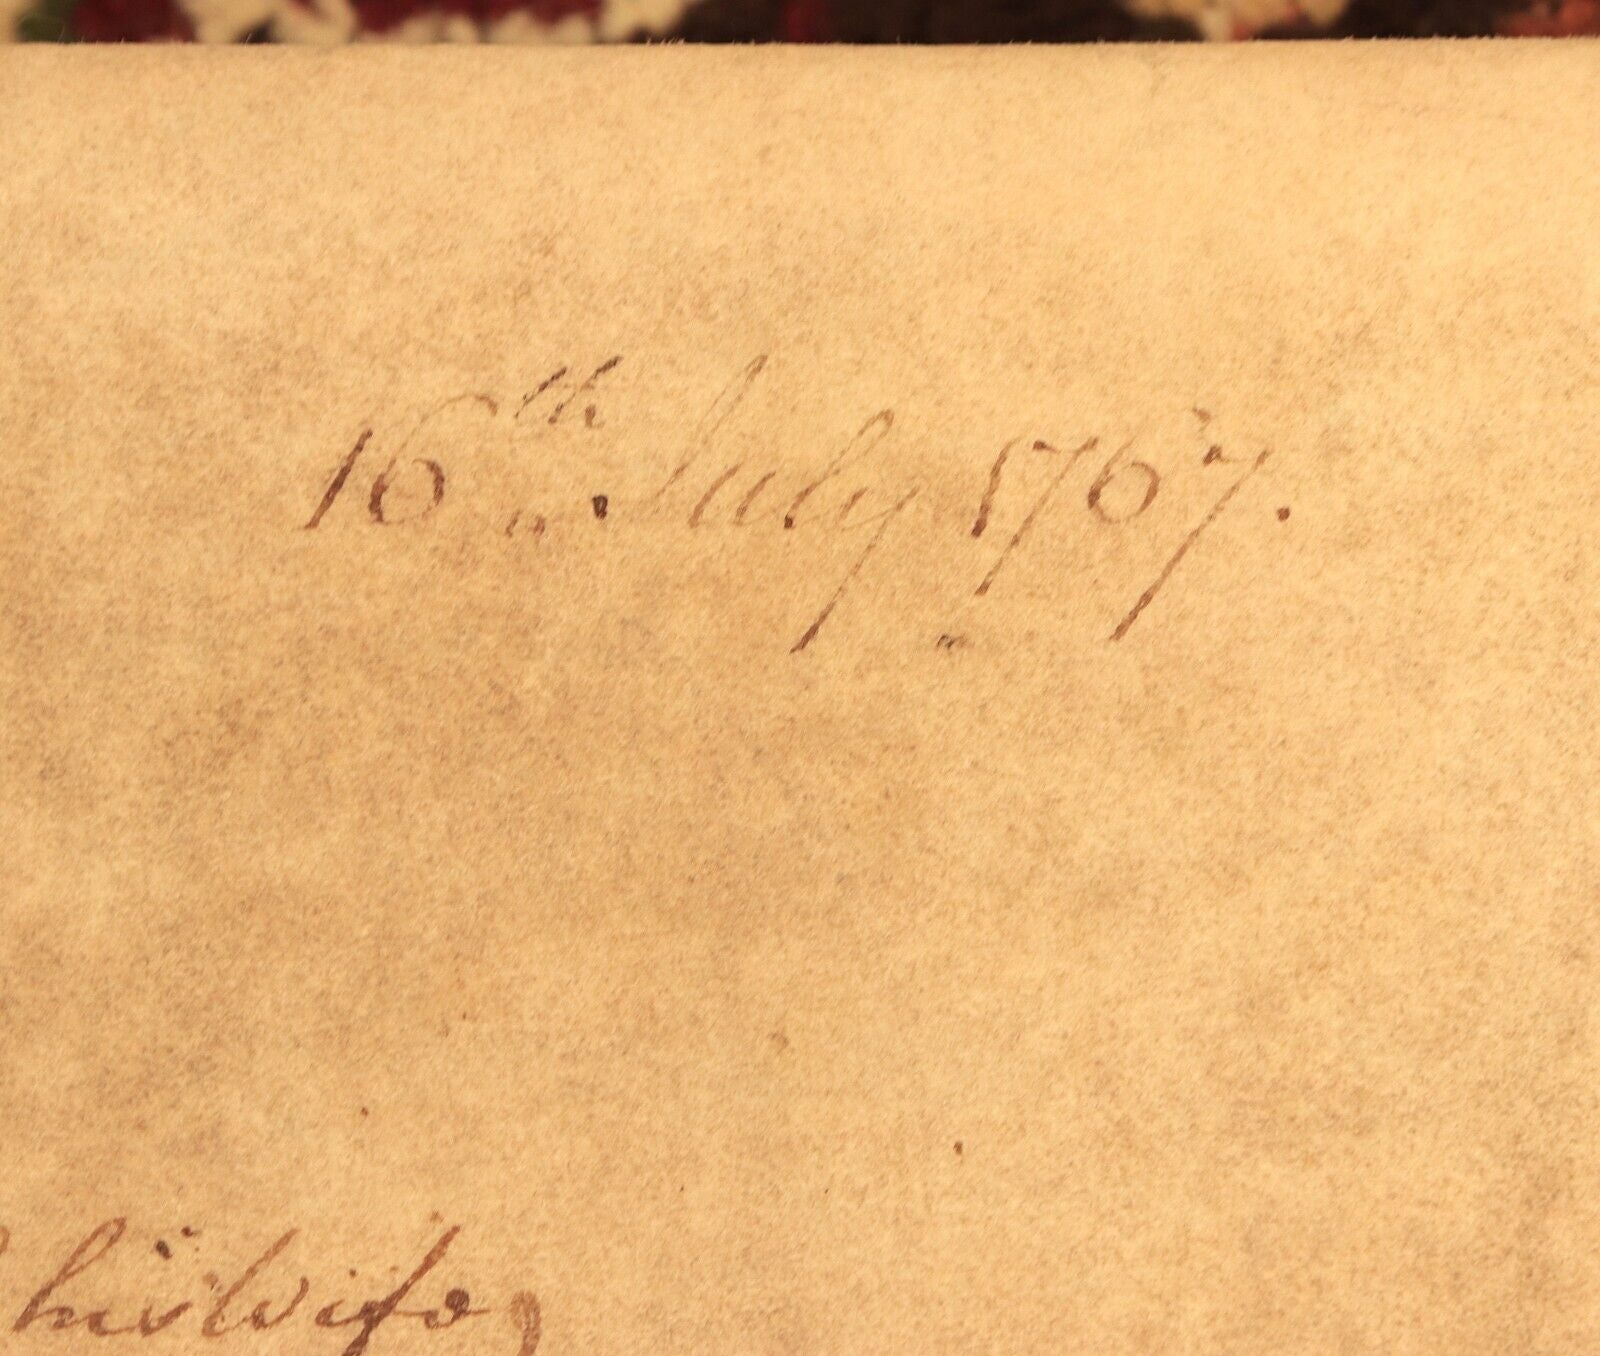 16th July 1767.
his Wife